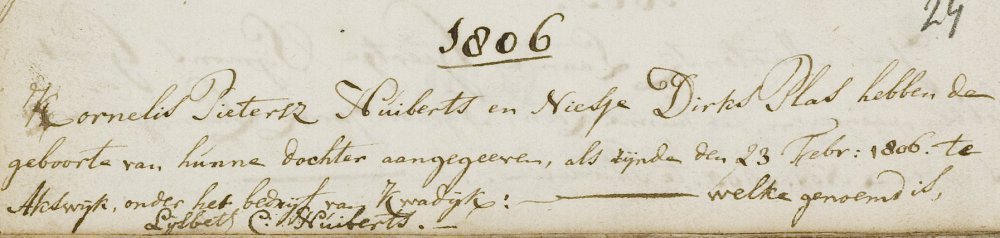 24
1806
Kornelis Pietersz Huiberts en Niesje Dirks Plas hebben de
geboorte van hunne dochter aangegeeven, als zijnde den 23 Febr: 1806. te
Akswijk, onder het bedrijf van Kwadijk: — welke genoemd is,
Lijsbeth C: Huiberts. —